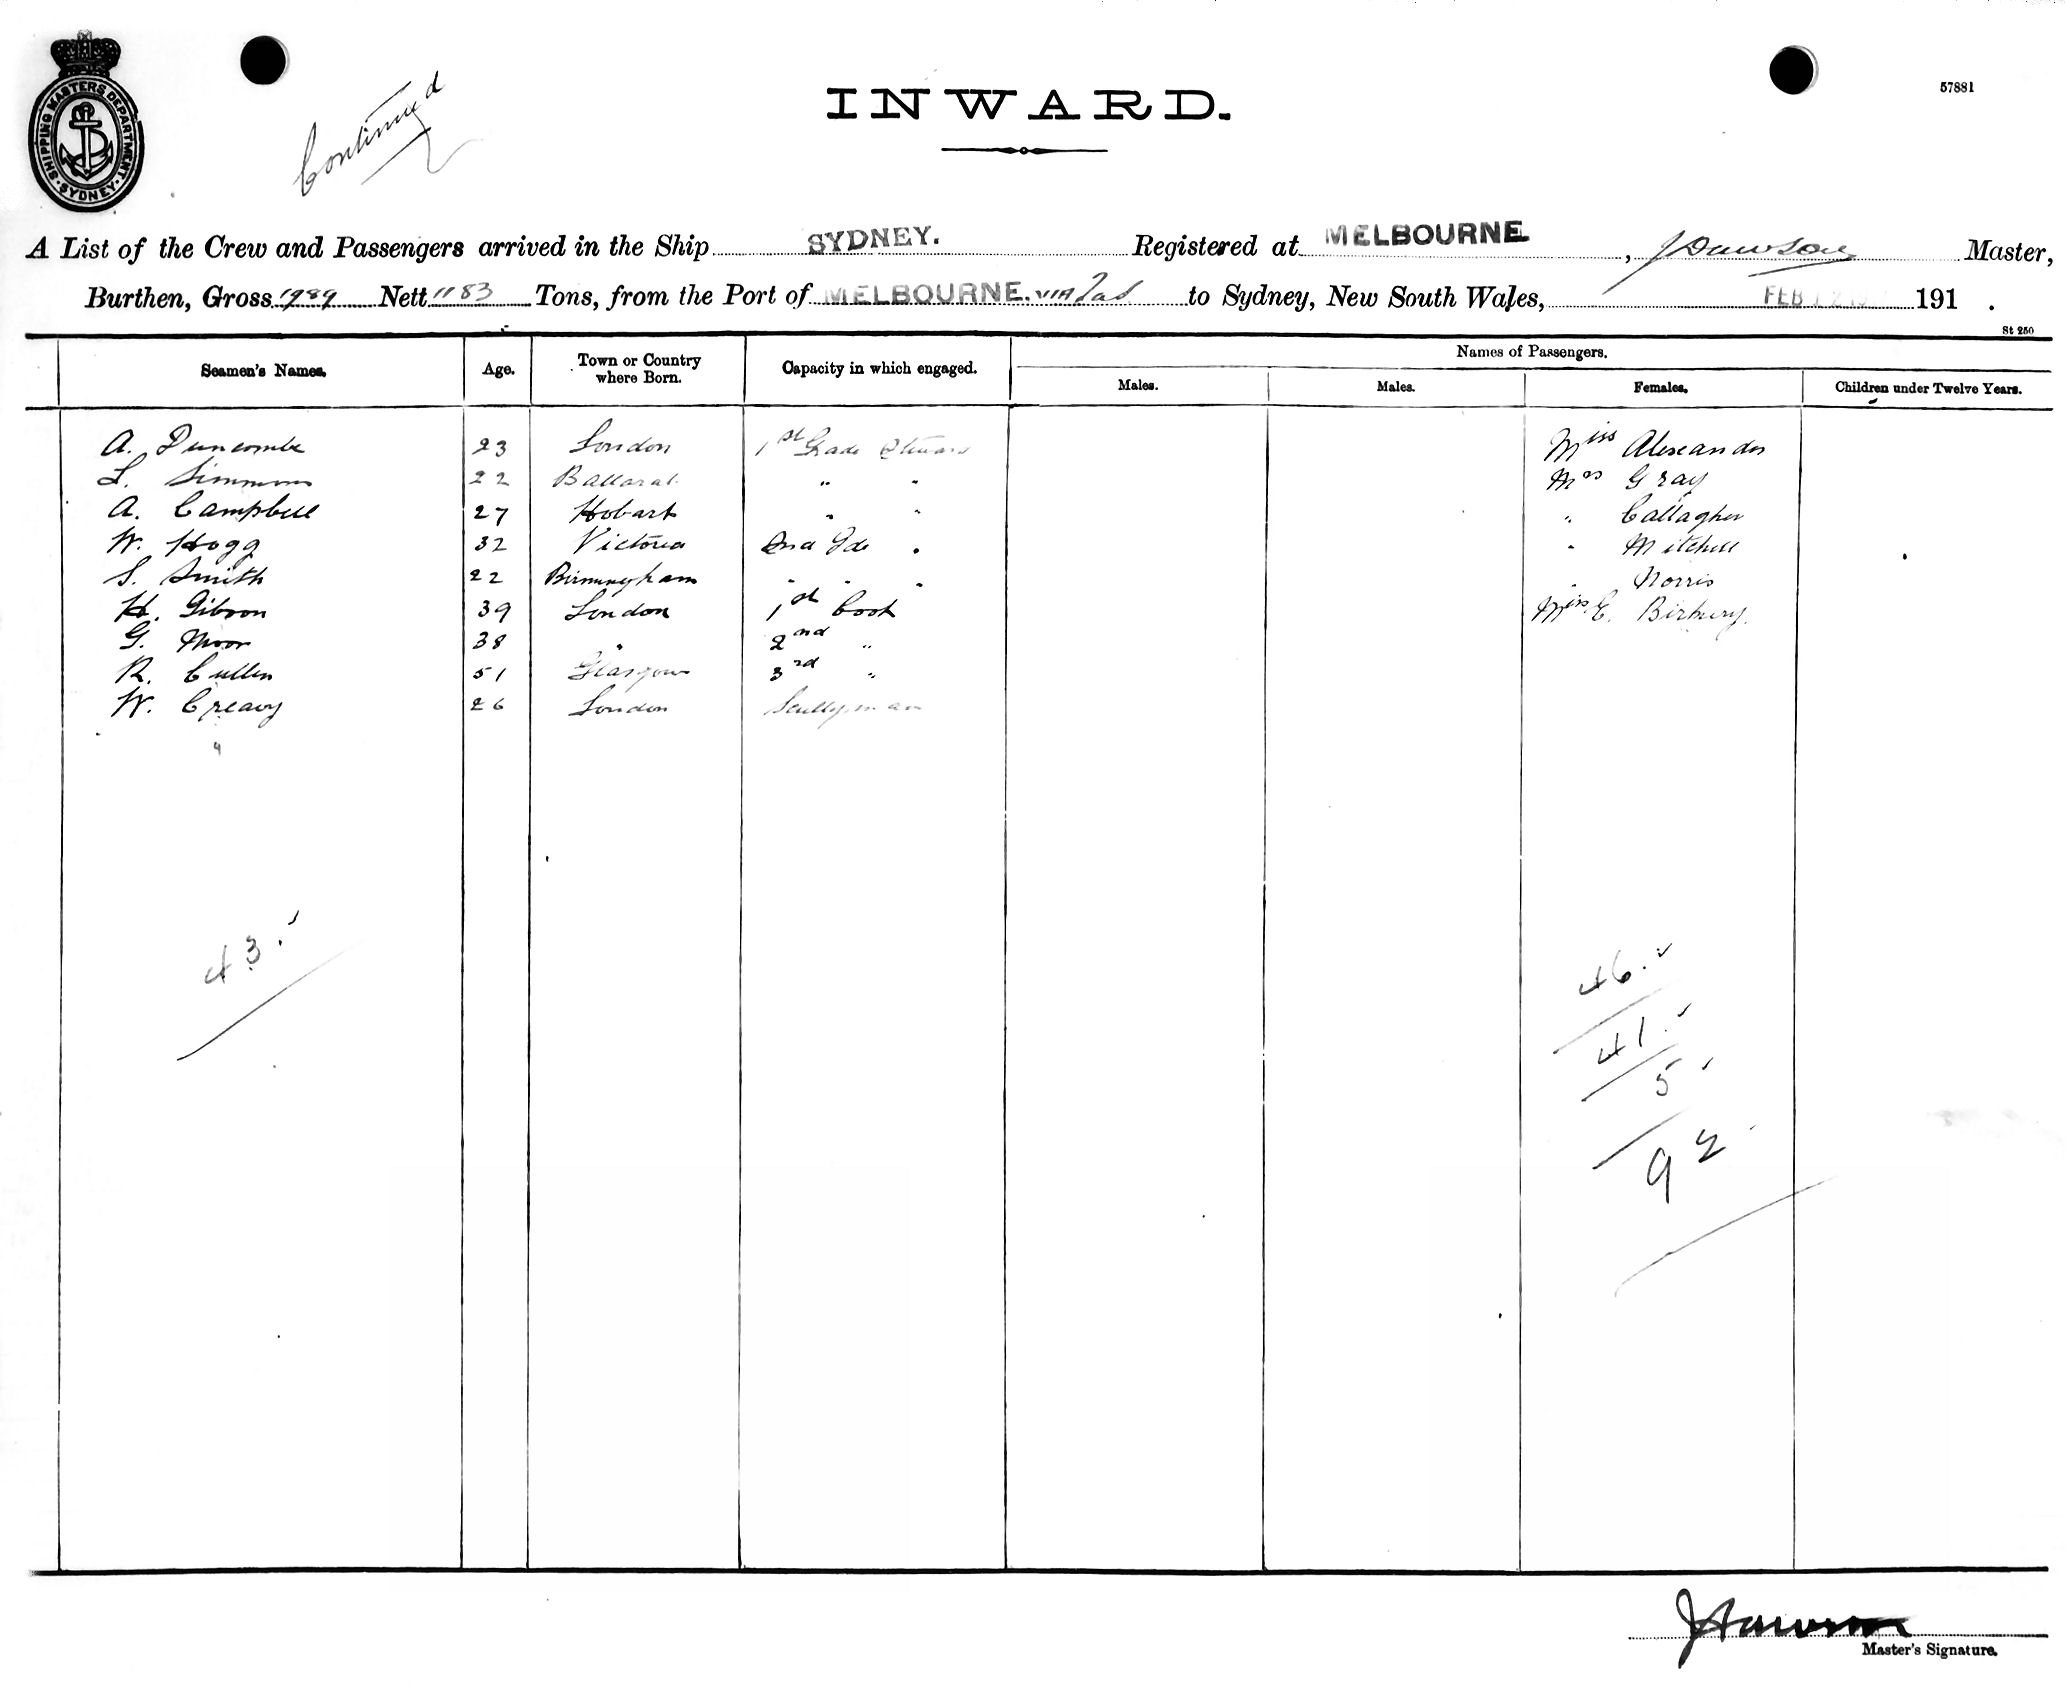 57881
SHIPPING MASTERS DEPARTMENT
SYDNEY
Continued
INWARD.
A List of the Crew and Passengers arrived in the Ship SYDNEY. Registered at MELBOURNE. , J Dawson Master,
Burthen, Gross 1989 Nett 1183 Tons, from the Port of MELBOURNE. VIA Tas to Sydney, New South Wales, FEB 191 .
St 250
Seamen's Names. Age. Town or Country where Born. Capacity in which engaged. Names of Passengers.
Males. Males. Females. Children under Twelve Years.
A. Duncombe 23 London 1st Grade Steward Miss Alexander
L. Simmons 22 Ballarat " " Mrs Gray
A. Campbell 27 Hobart " " " Callagher
W. Hogg 32 Victoria 2nd Gde " " Mitchell
S. Smith 22 Birmingham " " " " Norris
H. Gibson 39 London 1st Cook Miss E.
G. Moor 38 " 2nd "
R. Cullen 51 Glasgow 3rd "
W. Creavy 26 London Scullyman
43.
46.
41.
5
92
J Dawson
Master's Signature.